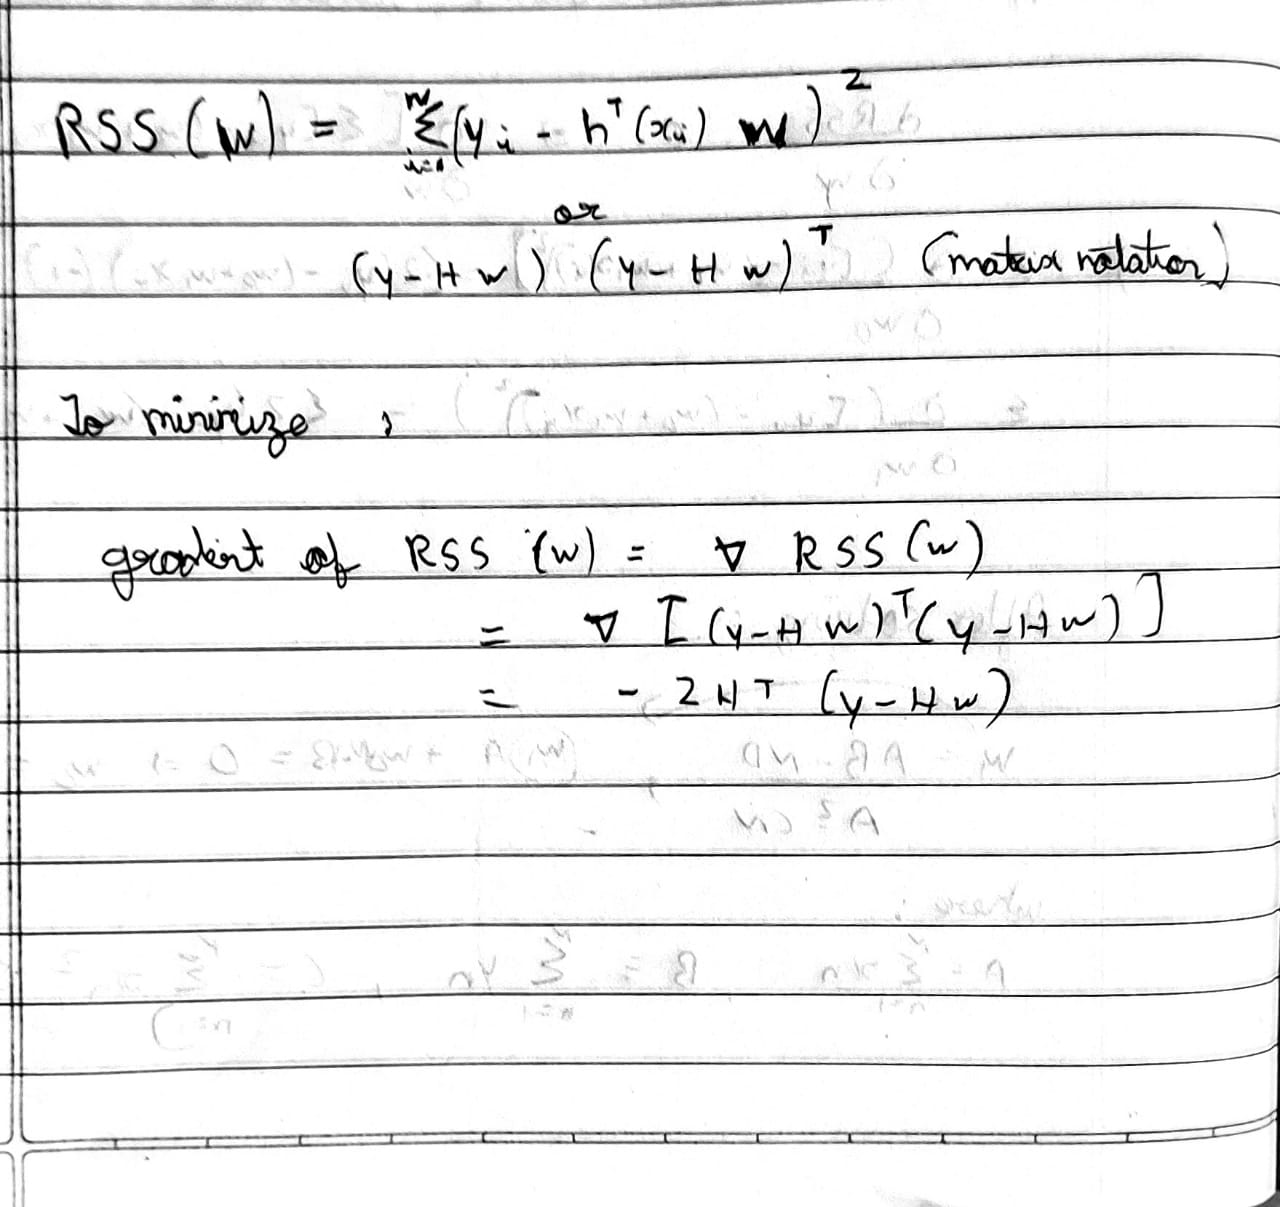 RSS (w) = N Σ i=1 (y i - hᵀ (xi) w)²
or
(y - H w) (y - H w)ᵀ (matrix notation)
To minimize ,
gradient of RSS (w) = ∇ RSS (w)
= ∇ [ (y - H w)ᵀ (y - H w) ]
= - 2 Hᵀ (y - H w)